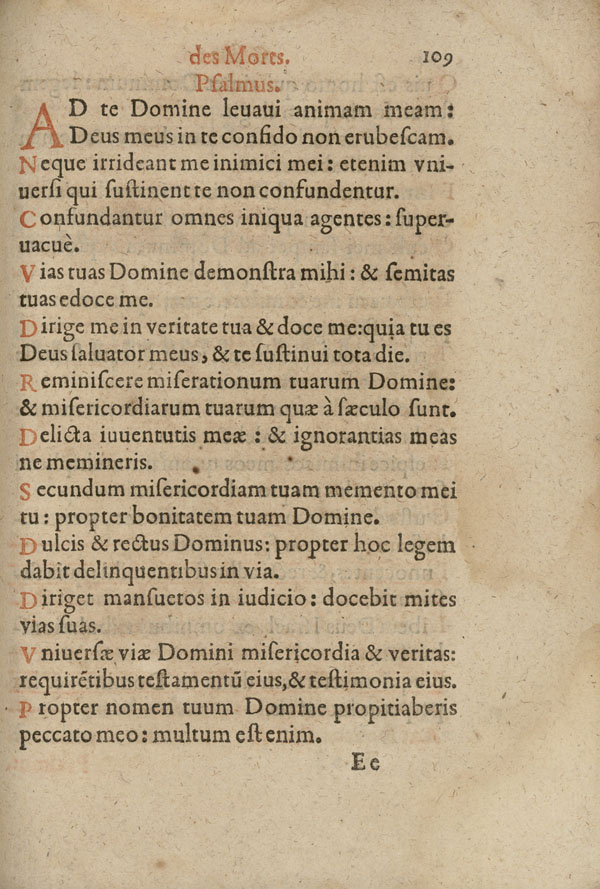 des Morts. 109
Psalmus.
AD te Domine leuaui animam meam:
Deus meus in te confido non erubescam.
Neque irrideant me inimici mei: etenim vni-
uersi qui sustinent te non confundentur.
Confundantur omnes iniqua agentes: super-
uacuè.
Vias tuas Domine demonstra mihi: & semitas
tuas edoce me.
Dirige me in veritate tua & doce me: quia tu es
Deus saluator meus, & te sustinui tota die.
Reminiscere miserationum tuarum Domine:
& misericordiarum tuarum quæ à sæculo sunt.
Delicta iuuentutis meæ: & ignorantias meas
ne memineris.
Secundum misericordiam tuam memento mei
tu: propter bonitatem tuam Domine.
Dulcis & rectus Dominus: propter hoc legem
dabit delinquentibus in via.
Diriget mansuetos in iudicio: docebit mites
vias suas.
Vniuersæ viæ Domini misericordia & veritas:
requirẽtibus testamentũ eius, & testimonia eius.
Propter nomen tuum Domine propitiaberis
peccato meo: multum est enim.
Ee